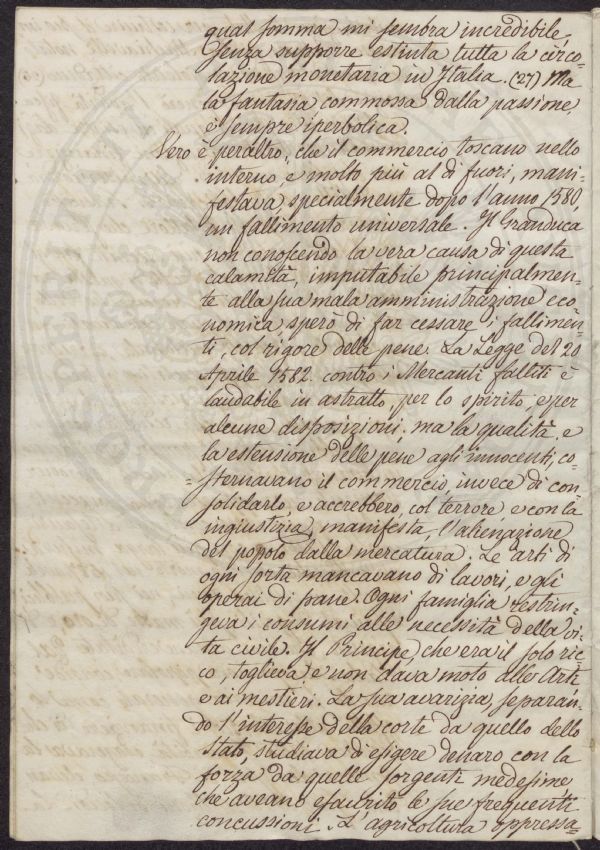 qual somma mi sembra incredibile
senza supporre estinta tutta la circo-
lazione monetaria in Italia. (27) Ma
la fantasia commossa dalla passione,
è sempre iperbolica.
Vero è peraltro, che il commercio toscano nello
interno, e molto più al di fuori, mani-
festava, specialmente dopo l'anno 1580,
un fallimento universale. Il Granduca
non conoscendo la vera causa di questa
calamità, imputabile principalmen-
te alla sua mala amministrazione eco
nomica, sperò di far cessare i fallimen-
ti, col rigore delle pene. La Legge del 20
Aprile 1582. contro i Mercanti falliti è
laudabile in astratto, per lo spirito, e per
alcune disposizioni; ma la qualità, e
la estensione delle pene agli innocenti, co-
sternavano il commercio, invece di con-
solidarlo, e accrebbero, col terrore e con la
ingiustizia manifesta, l'alienazione
del popolo dalla mercatura. Le arti di
ogni sorta mancavano di lavori, e gli
operai di pane. Ogni famiglia restrin-
geva i consumi alle necessità della vi-
ta civile. Il Principe, che era il solo ric-
co, toglieva, e non dava moto alle Arti
e ai mestieri. La sua avarizia, separan-
do l'interesse della corte da quello dello
Stato, studiava di esigere denaro con la
forza da quelle sorgenti medesime
che aveano esaurito le sue frequenti
concussioni. L'agricoltura oppressa-